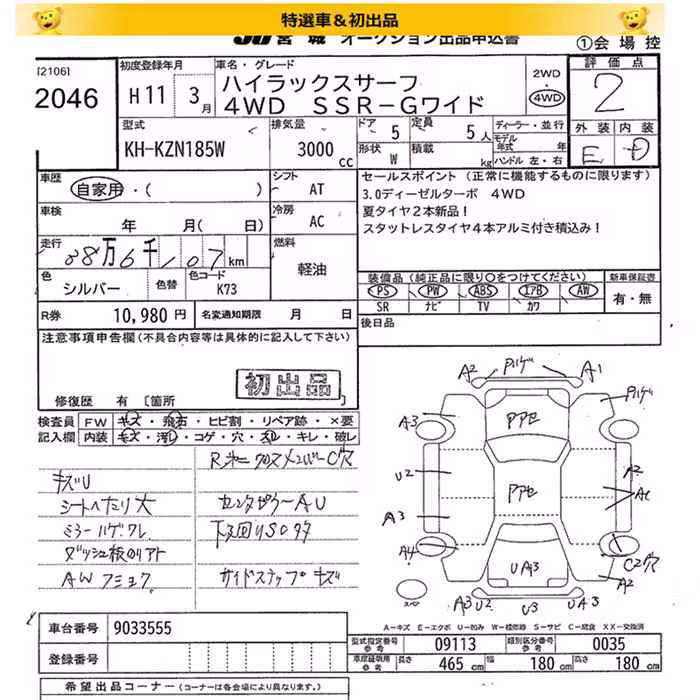 特選車＆初出品
JU宮城 オークション出品申込書
①会場控
[2106]
2046
初度登録年月
H11 3月
車名・グレード
ハイラックスサーフ
4WD SSR-Gワイド
2WD
・
4WD
評価点
2
外装 内装
E D
型式
KH-KZN185W
排気量
3000 cc
ドア 5
定員 5人
形状 W
積載 kg
ディーラー・並行
モデル年式 年
ハンドル 左・右
車歴
自家用・( )
シフト
AT
車検
年 月( 日)
冷房
AC
走行
38万6千107km
燃料
軽油
色
シルバー
色替
色コード
K73
R券 10,980 円
名変通知期限 月 日
セールスポイント (正常に機能するものに限ります)
3.0ディーゼルターボ 4WD
夏タイヤ2本新品！
スタットレスタイヤ4本アルミ付き積込み！
装備品 (純正品に限り○をつけてください)
PS PW ABS エアB AW
SR ナビ TV カワ
新車保証書
有・無
後日品
注意事項申告欄 (不具合内容等は具体的に記入して下さい)
初出品
修復歴 有 [箇所
検査員記入欄
FW キズ・飛石・ヒビ割・リペア跡・×要
内装 キズ・汚レ・コゲ・穴・スレ・キレ・破レ
キズU
シートヘたり大
ミラーハゲワレ
ダッシュ板のリアト
AWフショク
クロスメンバーC穴
センタピラーAU
下回りSOタタ
サイドステップキズ
A2 ハゲ A1
A3 ハゲ
アアセ
U2 アアセ A2
A3 A1
A4 UA3 C2穴
A2
スペア
A3 U2 U3 UA3
A-キズ E-エクボ U-凹み W-補修跡 S-サビ C-腐食 XX-交換済
車台番号 9033555
登録番号
型式指定番号 参考 09113
類別区分番号 参考 0035
車庫証明用 参考 長さ 465 cm 幅 180 cm 高さ 180 cm
希望出品コーナー (コーナーは各会場により異なります。)